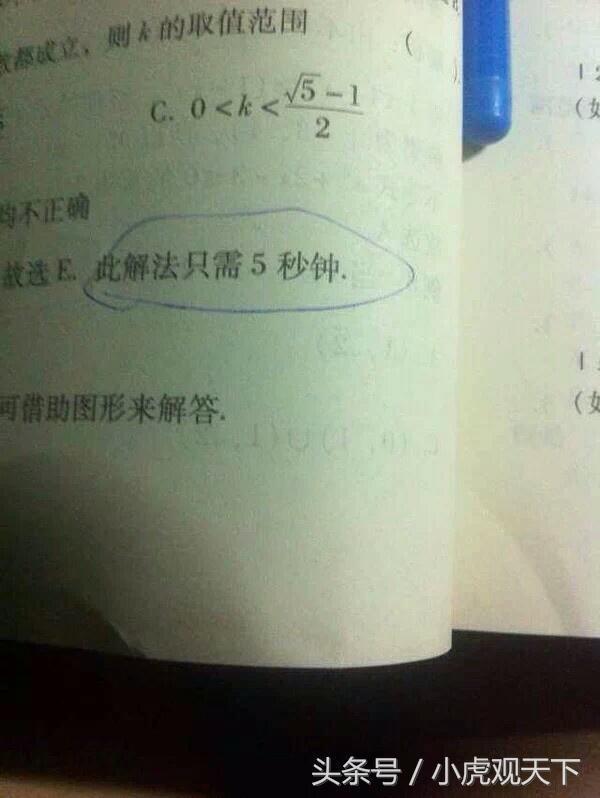 都成立，则k的取值范围
(
).
C. 0<k<\frac{\sqrt{5}-1}{2}
均不正确
故选E. 此解法只需5秒钟.
可借助图形来解答.
1 2
(如
(如
头条号／小虎观天下